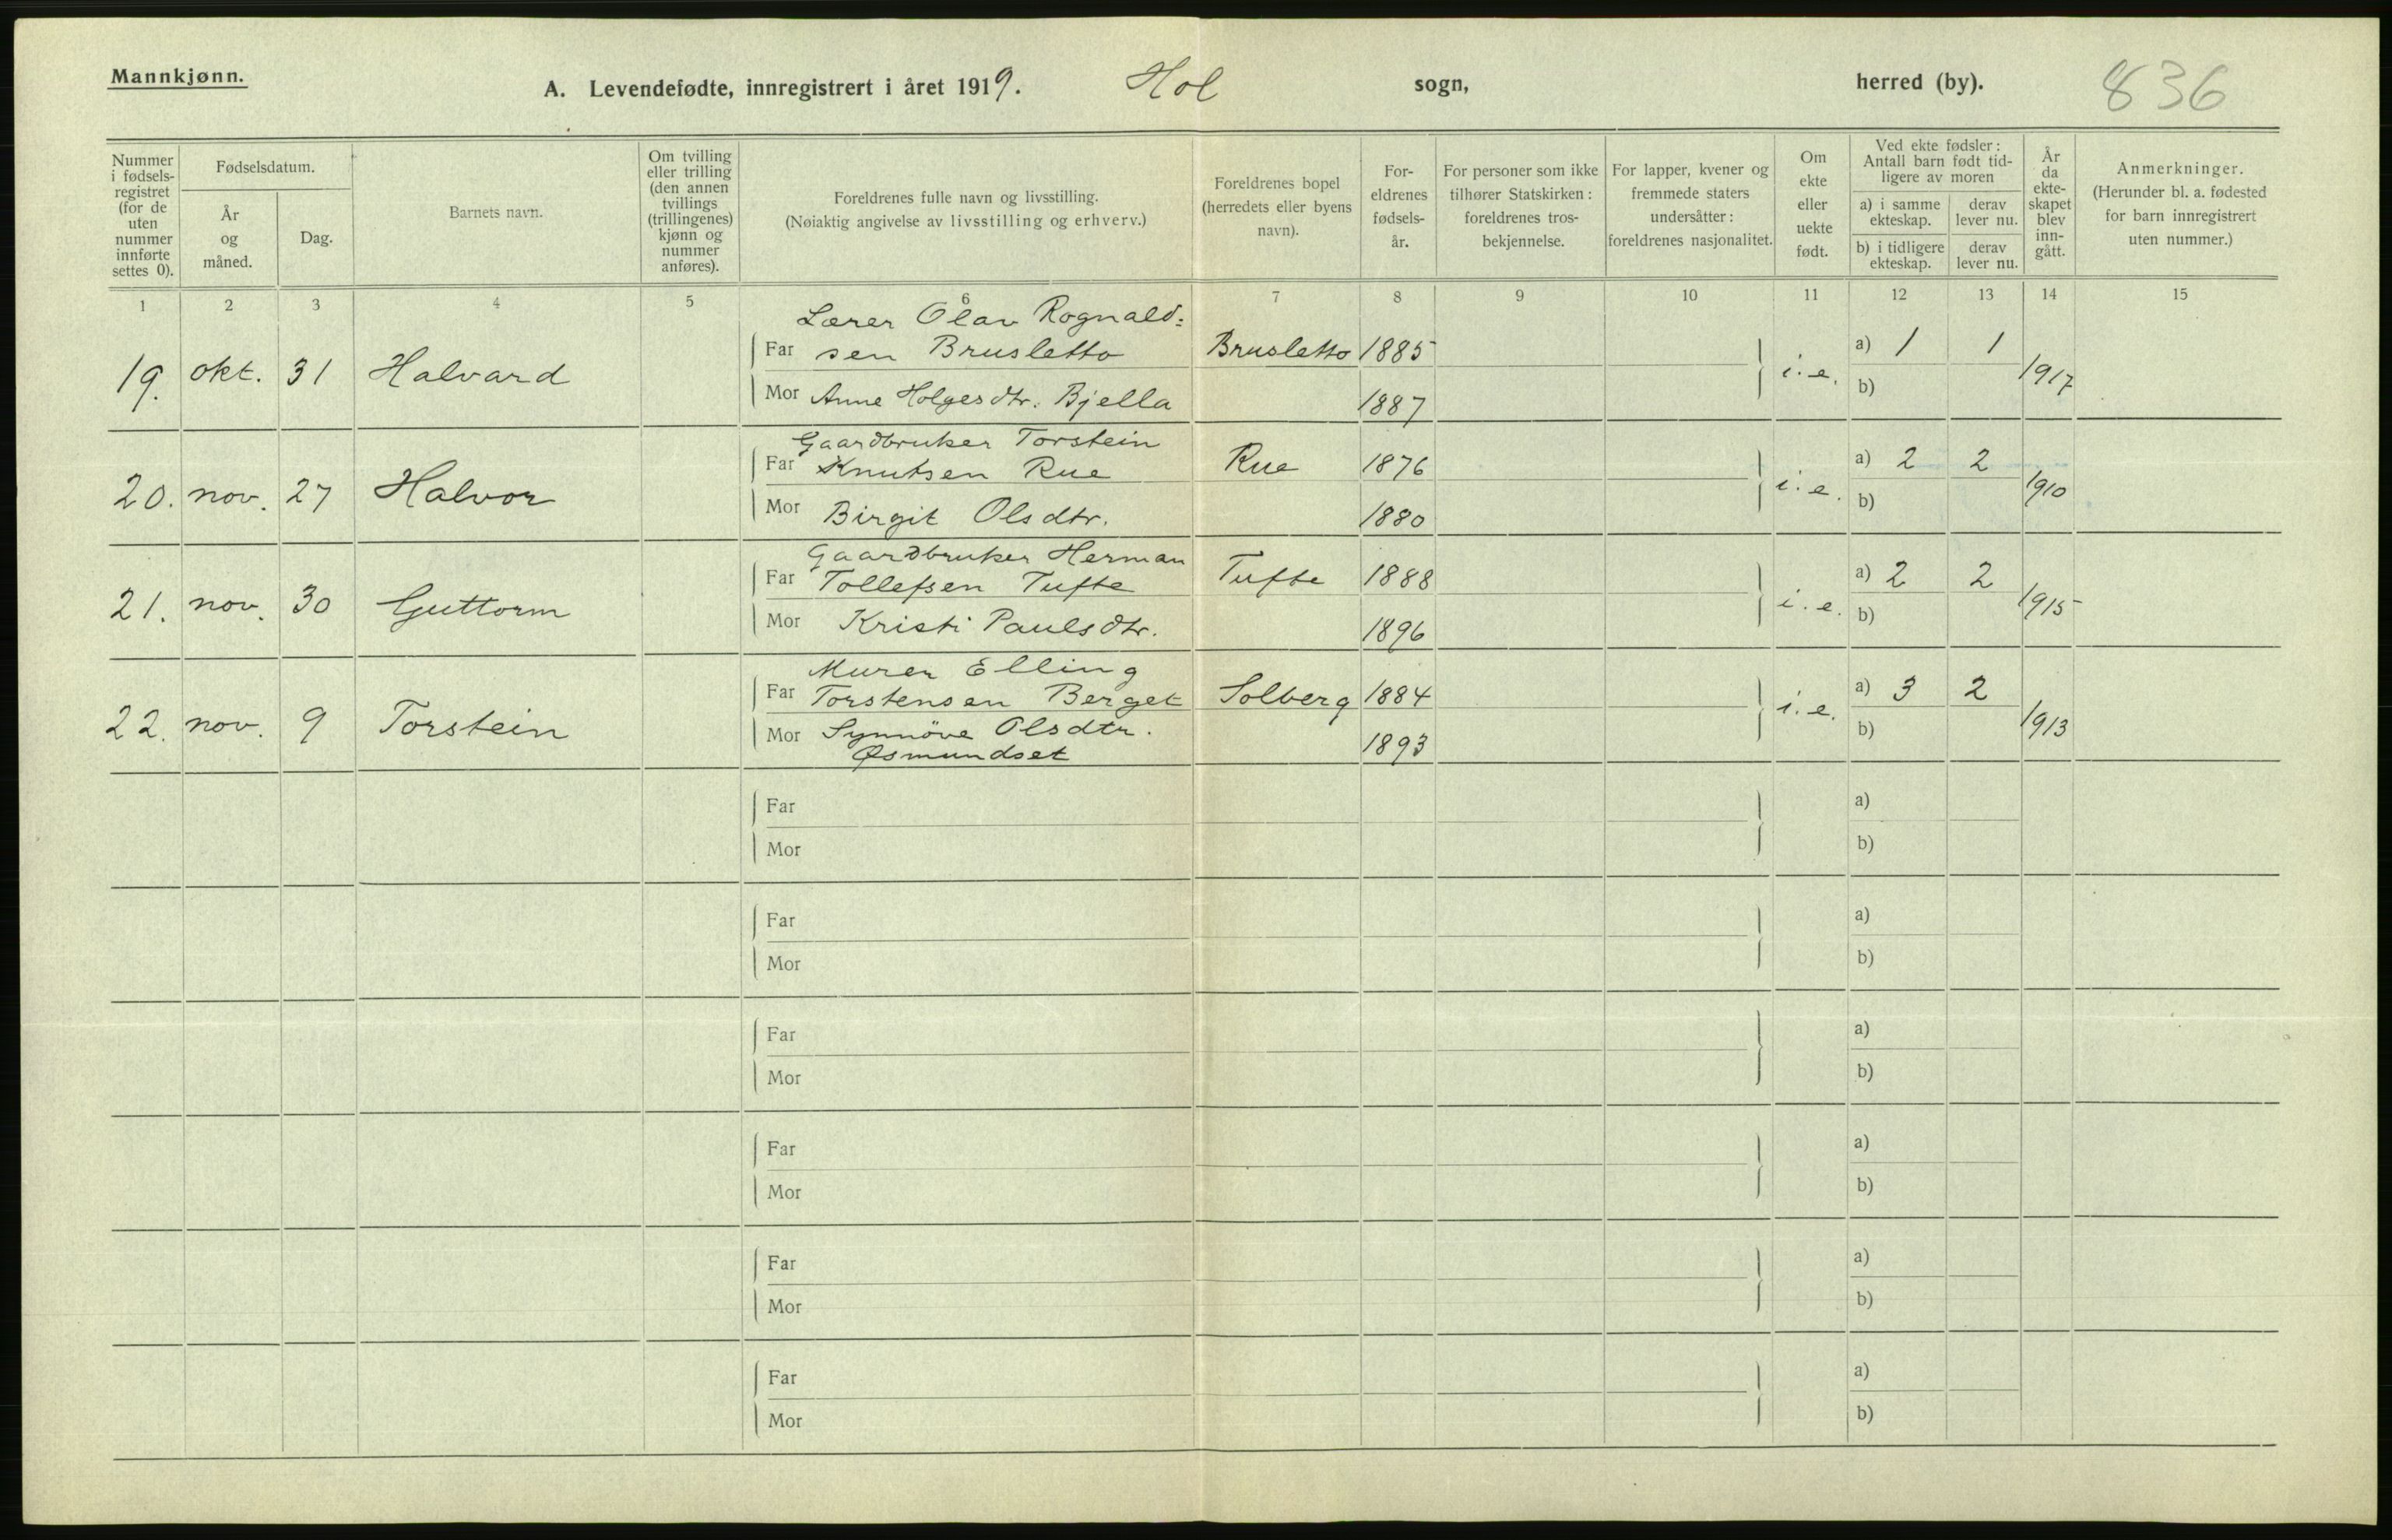 Mannkjønn.
A. Levendefødte, innregistrert i året 1919. Hol sogn, herred (by). 836
Nummer i fødsels-registret (for de uten nummer innførte settes 0).
Fødselsdatum.
År og måned.
Dag.
Barnets navn.
Om tvilling eller trilling (den annen tvillings (trillingenes) kjønn og nummer anføres).
Foreldrenes fulle navn og livsstilling.
(Nøiaktig angivelse av livsstilling og erhverv.)
Foreldrenes bopel (herredets eller byens navn).
For-eldrenes fødsels-år.
For personer som ikke tilhører Statskirken: foreldrenes tros-bekjennelse.
For lapper, kvener og fremmede staters undersåtter: foreldrenes nasjonalitet.
Om ekte eller uekte født.
Ved ekte fødsler: Antall barn født tid-ligere av moren
a) i samme ekteskap. derav lever nu.
b) i tidligere ekteskap. derav lever nu.
År da ekte-skapet blev inn-gått.
Anmerkninger.
(Herunder bl. a. fødested for barn innregistrert uten nummer.)
1 2 3 4 5 6 7 8 9 10 11 12 13 14 15
Lærer Olav Rognald-
19. okt. 31 Halvard Far sen Brusletto Brusletto 1885 i. e. a) 1 1 1917
Mor Anne Holgesdtr. Bjella 1887 b)
Gaardbruker Torstein
20. nov. 27 Halvor Far Knutsen Rue Rue 1876 i. e. a) 2 2 1910
Mor Birgit Olsdtr. 1880 b)
Gaardbruker Herman
21. nov. 30 Guttorm Far Tollefsen Tufte Tufte 1888 i. e. a) 2 2 1915
Mor Kristi Paulsdtr. 1896 b)
Murer Elling
22. nov. 9 Torstein Far Torstensen Berget Solberg 1884 i. e. a) 3 2 1913
Mor Synnöve Olsdtr. 1893 b)
Øsmundset
Far a)
Mor b)
Far a)
Mor b)
Far a)
Mor b)
Far a)
Mor b)
Far a)
Mor b)
Far a)
Mor b)